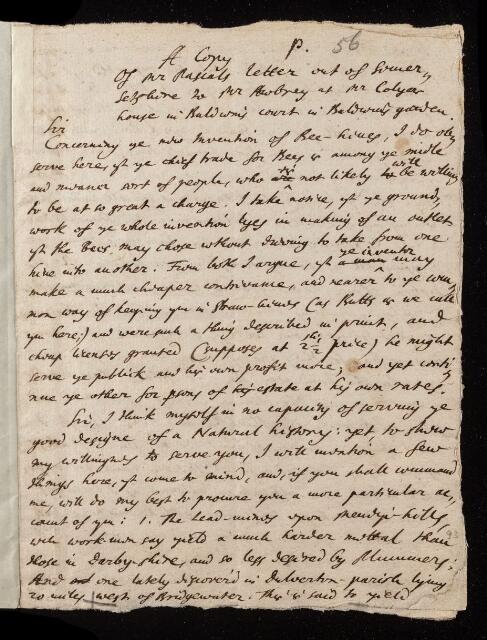 A Copy P. 56
Of Mr Pascals letter out of Somer„
setshire to Mr Awbrey at Mr Colyer
house in Baldwins court in Baldwins garden.
Sir
Concerning ye new Invention of Bee-hives, I do ob„
serve here, yt ye chief trade for Bees is among ye midle
and meaner sort of people, who are not likely to will be willing
to be at so great a charge. I take notice, yt ye ground„
work of ye whole invention lyes in making of an outlet
yt the Bees may chose without driving to take from one
hive into another. From both I argue, yt a man ye inventor may
make a much cheaper contrivance, and nearer to ye com„
mon way of keeping ym in straw-hives (as Butts as we call
ym here;) and were such a thing described in print, and
cheap licenses granted (suppose at 2-2 price) he might
serve ye publick and his own profit more; and yet conti„
nue ye other for psons of his estate at his own rates.
Sir, I think myself in no capacity of serving ye
good designe of a Natural history: yet to shew
my willingness to serve you, I will mention a few
things here, yt come to mind, and, if you shall command
me, will do my best to procure you a more particular ac„
count of ym: 1. The Lead-mines upon Mendip-hills,
wch work-men say yield a much harder mettal than
those in Darby-shire, and so less desired by Plummers.
And one lately discover'd in Dulverton-parish lying
20 miles west of Bridgewater. This is said to yield